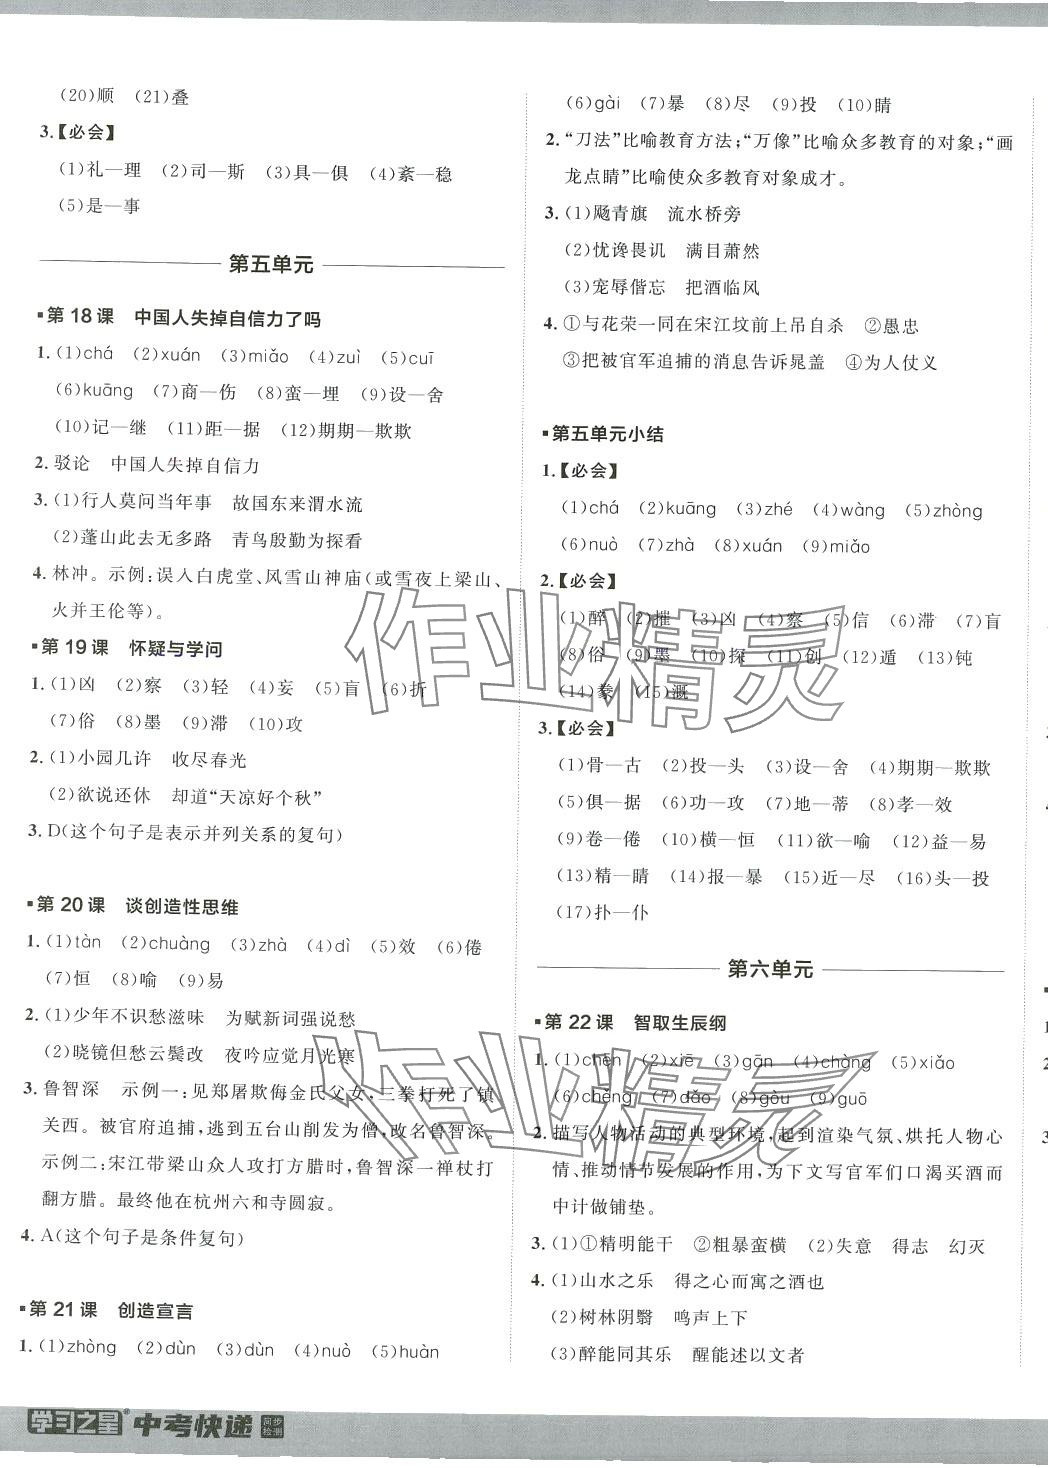 (20)顺　(21)叠
3.【必会】
(1)礼—理　(2)司—斯　(3)具—俱　(4)紊—稳
(5)是—事
第五单元
第 18 课　中国人失掉自信力了吗
1. (1)chá　(2)xuán　(3)miǎo　(4)zuì　(5)cuī
(6)kuāng　(7)商—伤　(8)蛮—埋　(9)设—舍
(10)记—继　(11)距—据　(12)期期—欺欺
2. 驳论　中国人失掉自信力
3. (1)行人莫问当年事　故国东来渭水流
(2)蓬山此去无多路　青鸟殷勤为探看
4. 林冲。示例：误入白虎堂、风雪山神庙（或雪夜上梁山、
火并王伦等）。
第 19 课　怀疑与学问
1. (1)凶　(2)察　(3)轻　(4)妄　(5)盲　(6)折
(7)俗　(8)墨　(9)滞　(10)攻
2. (1)小园几许　收尽春光
(2)欲说还休　却道“天凉好个秋”
3. D（这个句子是表示并列关系的复句）
第 20 课　谈创造性思维
1. (1)tàn　(2)chuàng　(3)zhà　(4)dì　(5)效　(6)倦
(7)恒　(8)喻　(9)易
2. (1)少年不识愁滋味　为赋新词强说愁
(2)晓镜但愁云鬓改　夜吟应觉月光寒
3. 鲁智深　示例一：见郑屠欺侮金氏父女，三拳打死了镇
关西。被官府追捕，逃到五台山削发为僧，改名鲁智深。
示例二：宋江带梁山众人攻打方腊时，鲁智深一禅杖打
翻方腊。最终他在杭州六和寺圆寂。
4. A（这个句子是条件复句）
第 21 课　创造宣言
1. (1)zhòng　(2)dùn　(3)dùn　(4)nuò　(5)huàn
(6)gài　(7)暴　(8)尽　(9)投　(10)睛
2. “刀法”比喻教育方法；“万像”比喻众多教育的对象；“画
龙点睛”比喻使众多教育对象成才。
3. (1)飏青旗　流水桥旁
(2)忧谗畏讥　满目萧然
(3)宠辱偕忘　把酒临风
4. ①与花荣一同在宋江坟前上吊自杀　②愚忠
③把被官军追捕的消息告诉晁盖　④为人仗义
第五单元小结
1.【必会】
(1)chá　(2)kuāng　(3)zhé　(4)wàng　(5)zhòng
(6)nuò　(7)zhà　(8)xuán　(9)miǎo
2.【必会】
(1)醉　(2)摧　(3)凶　(4)察　(5)信　(6)滞　(7)盲
(8)俗　(9)墨　(10)探　(11)创　(12)遁　(13)钝
(14)豢　(15)溉
3.【必会】
(1)骨—古　(2)投—头　(3)设—舍　(4)期期—欺欺
(5)俱—据　(6)功—攻　(7)地—蒂　(8)孝—效
(9)卷—倦　(10)横—恒　(11)欲—喻　(12)益—易
(13)精—睛　(14)报—暴　(15)近—尽　(16)头—投
(17)扑—仆
第六单元
第 22 课　智取生辰纲
1. (1)chēn　(2)xiē　(3)gān　(4)chàng　(5)xiǎo
(6)chěng　(7)dǎo　(8)gòu　(9)guō
2. 描写人物活动的典型环境，起到渲染气氛、烘托人物心
情、推动情节发展的作用，为下文写官军们口渴买酒而
中计做铺垫。
3. (1)①精明能干　②粗暴蛮横　(2)失意　得志　幻灭
4. (1)山水之乐　得之心而寓之酒也
(2)树林阴翳　鸣声上下
(3)醉能同其乐　醒能述以文者
学习之星® 中考快递 同步检测
作业精灵
作业精灵